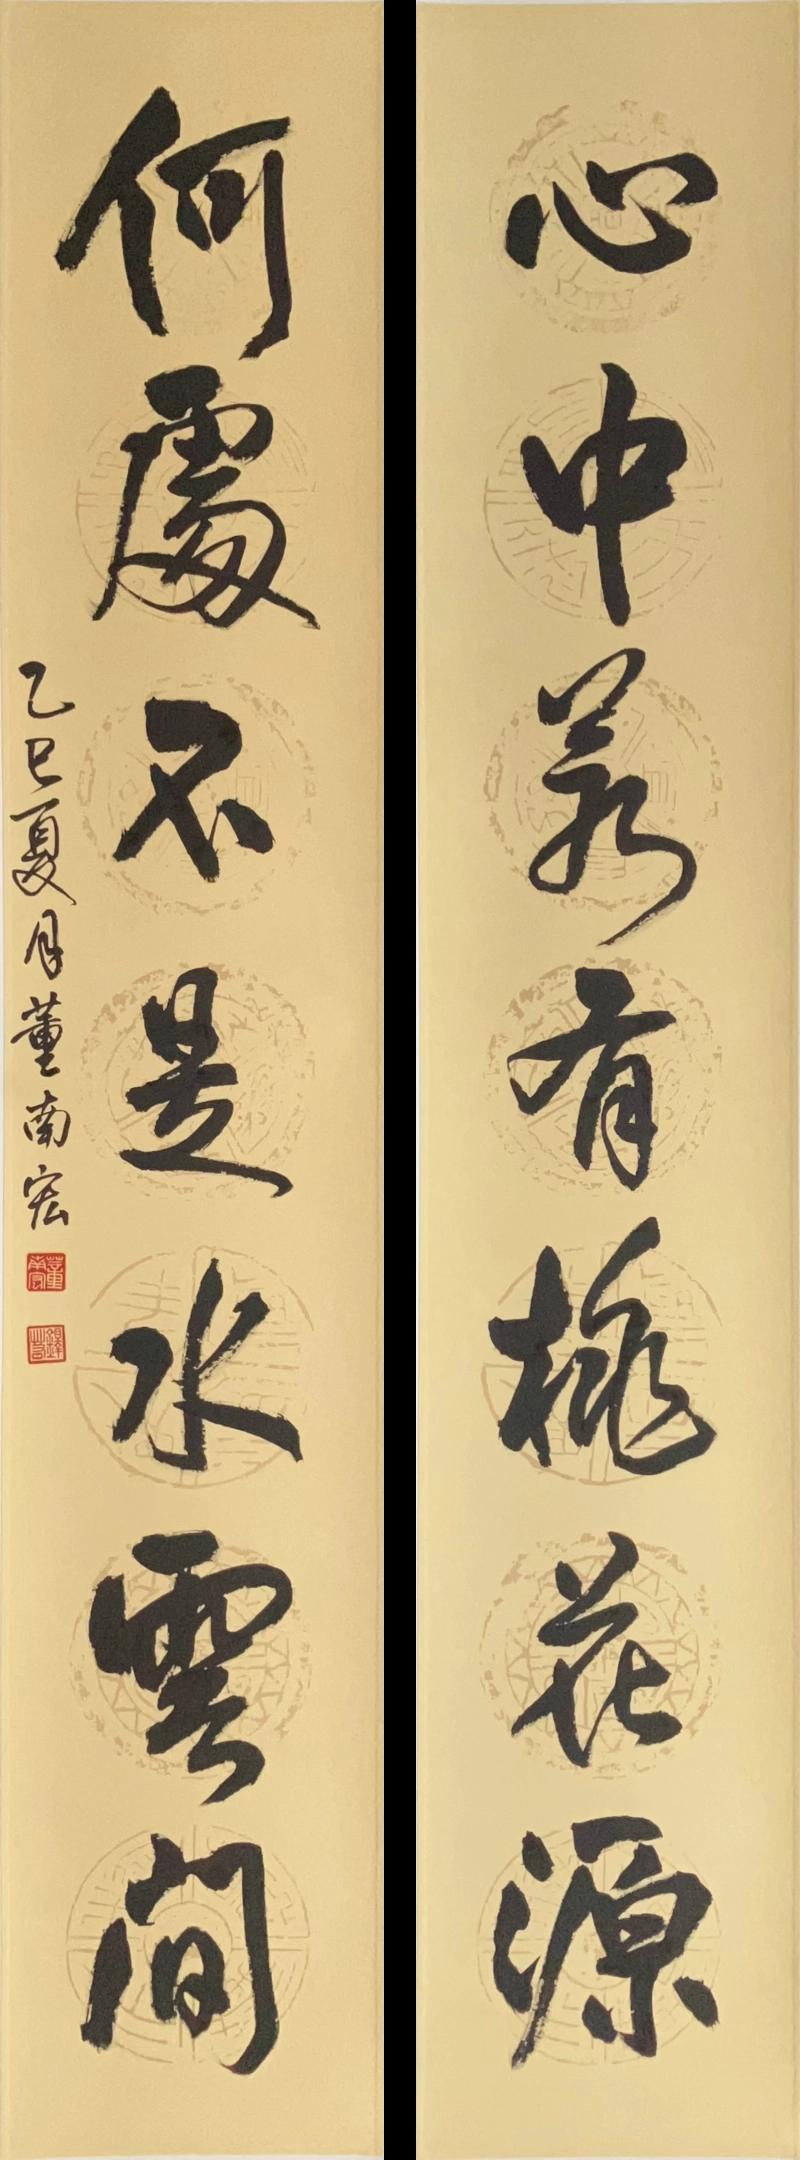 心中若有桃花源
何處不是水雲間
乙巳夏月董南宏